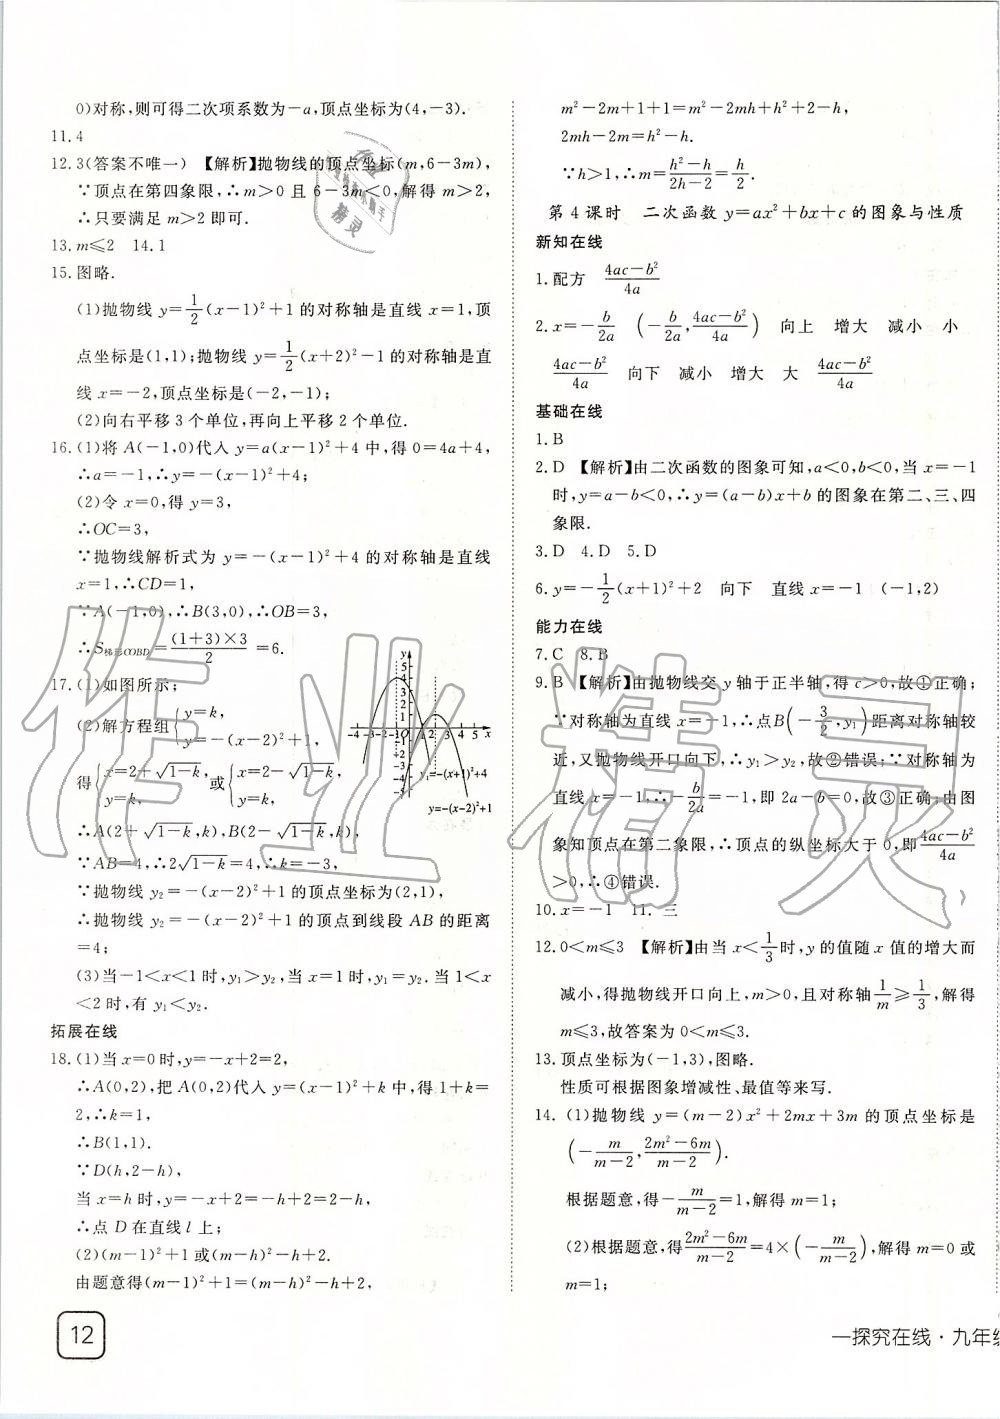 0)对称,则可得二次项系数为-a,顶点坐标为(4,-3).
11.4
12.3(答案不唯一) 【解析】抛物线的顶点坐标(m,6-3m),
∵顶点在第四象限,∴m>0 且 6-3m<0,解得 m>2,
∴只要满足 m>2 即可.
13.m≤2 14.1
15.图略.
(1)抛物线 y=1/2(x-1)²+1 的对称轴是直线 x=1,顶
点坐标是(1,1);抛物线 y=1/2(x+2)²-1 的对称轴是直
线 x=-2,顶点坐标是(-2,-1);
(2)向右平移 3 个单位,再向上平移 2 个单位.
16.(1)将 A(-1,0)代入 y=a(x-1)²+4 中,得 0=4a+4,
∴a=-1,∴y=-(x-1)²+4;
(2)令 x=0,得 y=3,
∴OC=3,
∵抛物线解析式为 y=-(x-1)²+4 的对称轴是直线
x=1,∴CD=1,
∵A(-1,0),∴B(3,0),∴OB=3,
∴S梯形COBD=(1+3)×3/2=6.
17.(1)如图所示;
(2)解方程组{y=k, y=-(x-2)²+1,
得{x=2+√(1-k), y=k, 或{x=2-√(1-k), y=k,
∴A(2+√(1-k),k),B(2-√(1-k),k),
∵AB=4,∴2√(1-k)=4,∴k=-3,
∵抛物线 y₂=-(x-2)²+1 的顶点坐标为(2,1),
∴抛物线 y₂=-(x-2)²+1 的顶点到线段 AB 的距离
=4;
(3)当-1<x<1 时,y₁>y₂,当 x=1 时,y₁=y₂,当 1<x
<2 时,有 y₁<y₂.
y₁=-(x+1)²+4
y=-(x-2)²+1
拓展在线
18.(1)当 x=0 时,y=-x+2=2,
∴A(0,2),把 A(0,2)代入 y=(x-1)²+k 中,得 1+k=
2,∴k=1,
∴B(1,1).
∵D(h,2-h),
当 x=h 时,y=-x+2=-h+2=2-h,
∴点 D 在直线 l 上;
(2)(m-1)²+1 或(m-h)²-h+2.
由题意得(m-1)²+1=(m-h)²-h+2,
12
m²-2m+1+1=m²-2mh+h²-h+2,
2mh-2m=h²-h.
∵h>1,∴m=(h²-h)/(2h-2)=h/2.
第 4 课时 二次函数 y=ax²+bx+c 的图象与性质
新知在线
1.配方 (4ac-b²)/4a
2.x=-b/2a (-b/2a,(4ac-b²)/4a) 向上 增大 减小 小
(4ac-b²)/4a 向下 减小 增大 大 (4ac-b²)/4a
基础在线
1.B
2.D 【解析】由二次函数的图象可知,a<0,b<0,当 x=-1
时,y=a-b<0,∴y=(a-b)x+b 的图象在第二、三、四
象限.
3.D 4.D 5.D
6.y=-1/2(x+1)²+2 向下 直线 x=-1 (-1,2)
能力在线
7.C 8.B
9.B 【解析】由抛物线交 y 轴于正半轴,得 c>0,故①正确;
∵对称轴为直线 x=-1,∴点B(-3/2,y₁)距离对称轴较
近,又抛物线开口向下,∴y₁>y₂,故②错误;∵对称轴为
直线 x=-1,∴-b/2a=-1,即 2a-b=0,故③正确;由图
象知顶点在第二象限,∴顶点的纵坐标大于 0,即(4ac-b²)/4a
>0,∴④错误.
10.x=-1 11.三
12.0<m≤3 【解析】由当 x<1/3时,y 的值随 x 值的增大而
减小,得抛物线开口向上,m>0,且对称轴1/m≥1/3,解得
m≤3,故答案为 0<m≤3.
13.顶点坐标为(-1,3),图略.
性质可根据图象增减性、最值等来写.
14.(1)抛物线 y=(m-2)x²+2mx+3m 的顶点坐标是
(-m/(m-2),(2m²-6m)/(m-2)).
根据题意,得-m/(m-2)=1,解得 m=1;
(2)根据题意,得(2m²-6m)/(m-2)=4×(-m/(m-2)),解得 m=0或
m=1;
一探究在线·九年级
作业精灵